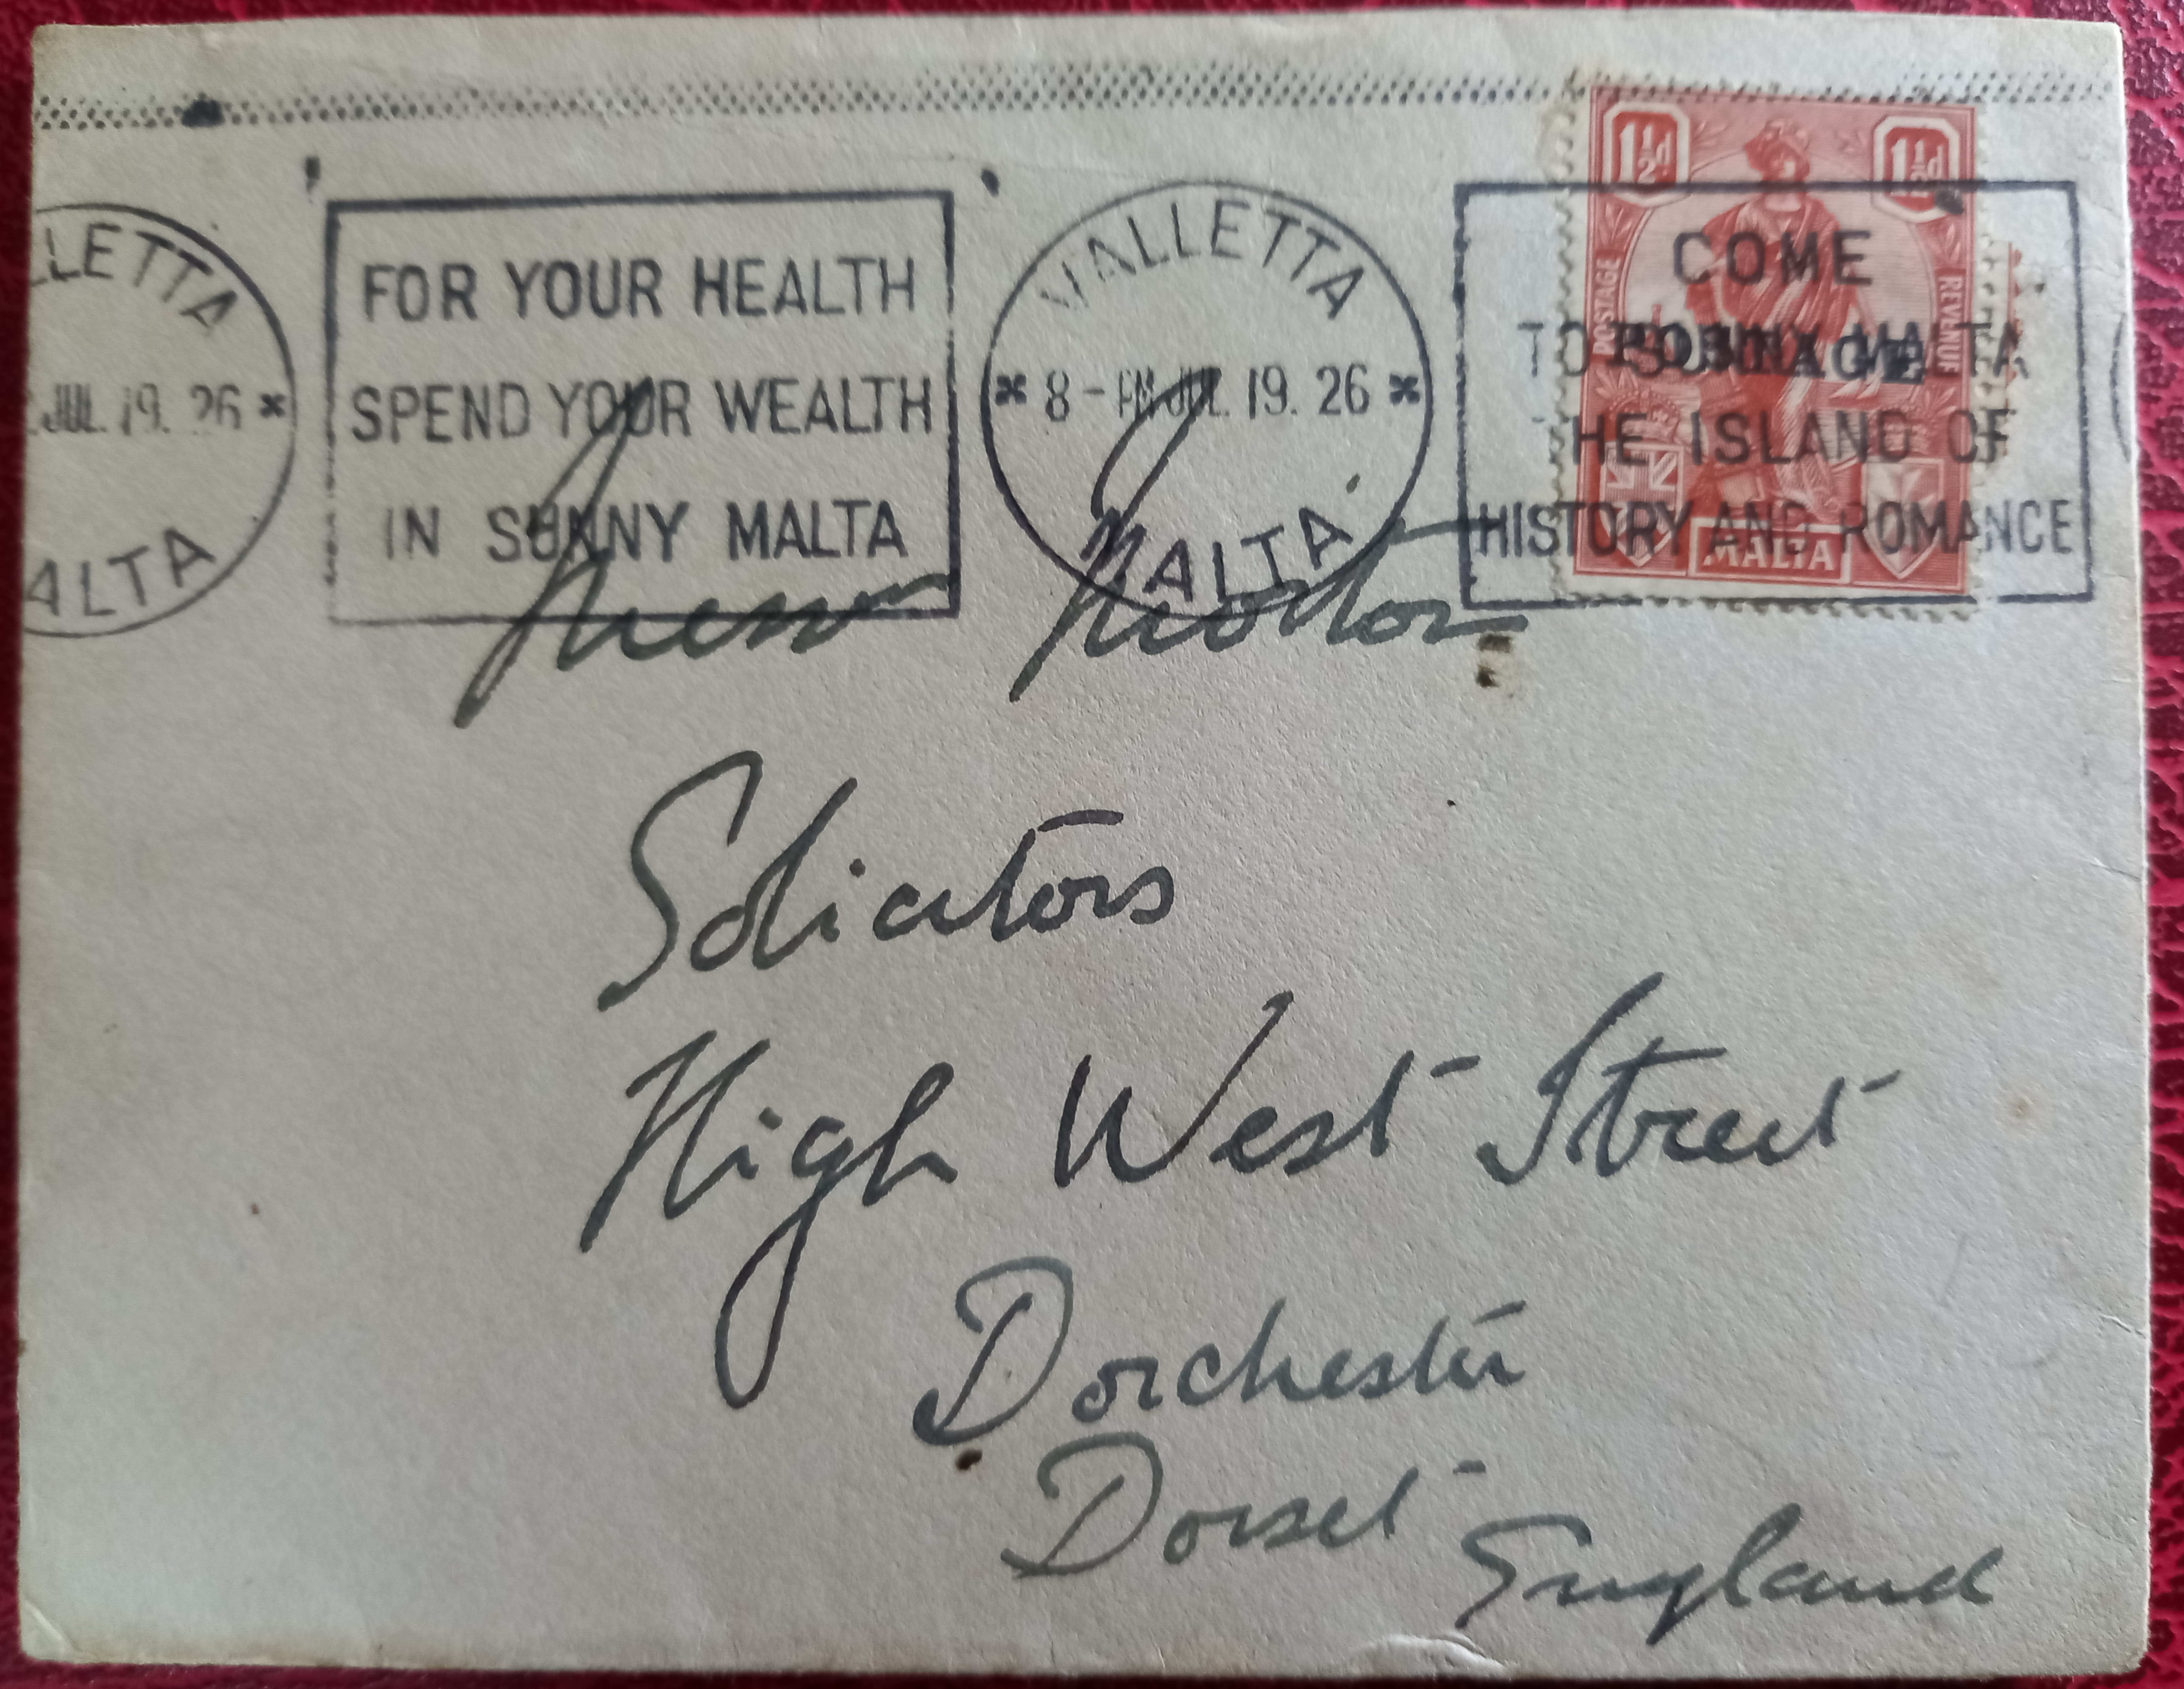 LLETTA
JUL. 19. 26 *
ALTA
FOR YOUR HEALTH
SPEND YOUR WEALTH
IN SUNNY MALTA
VALLETTA
* 8 - PM JUL. 19. 26 *
MALTA.
1½d 1½d
POSTAGE REVENUE
POSTAGE
MALTA
COME
TO SUNNY MALTA
THE ISLAND OF
HISTORY AND ROMANCE
Solicitors
High West Street
Dorchester
Dorset
England